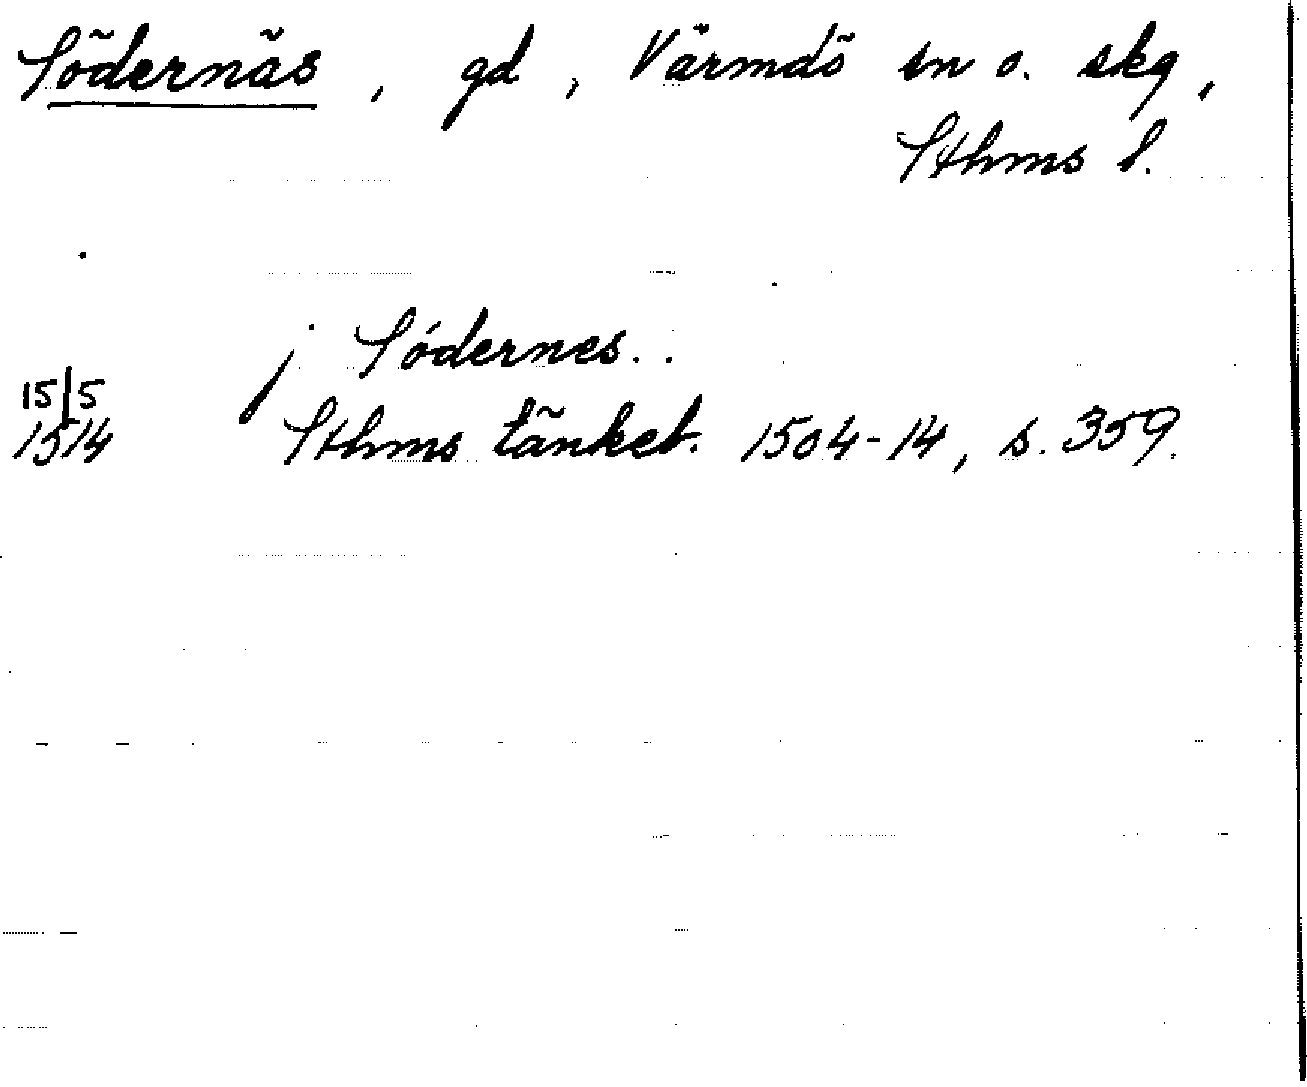 Södernäs, gd, Värmdö sn o. skg,
Sthms l.
j Södernes..
15/5
1514 Sthms tänkeb. 1504-14, s. 359.